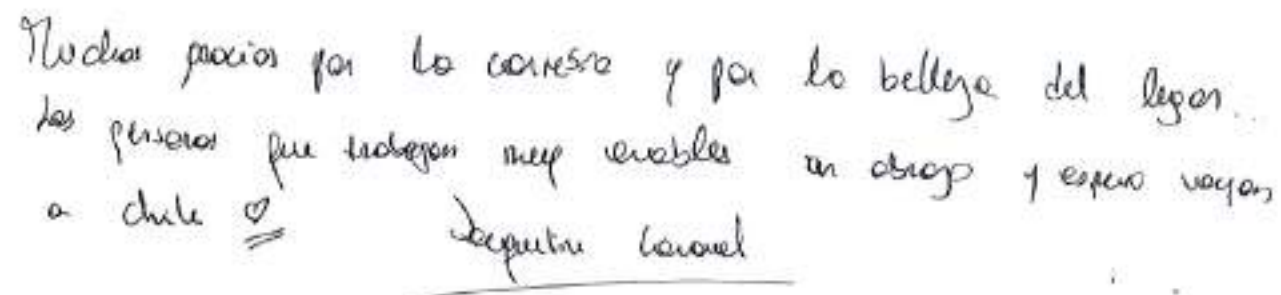 Muchas gracias por la cortesía y por la belleza del lugar..
Las personas que trabajan muy amables un abrazo y espero vayan
a chile ♡ Jacqueline